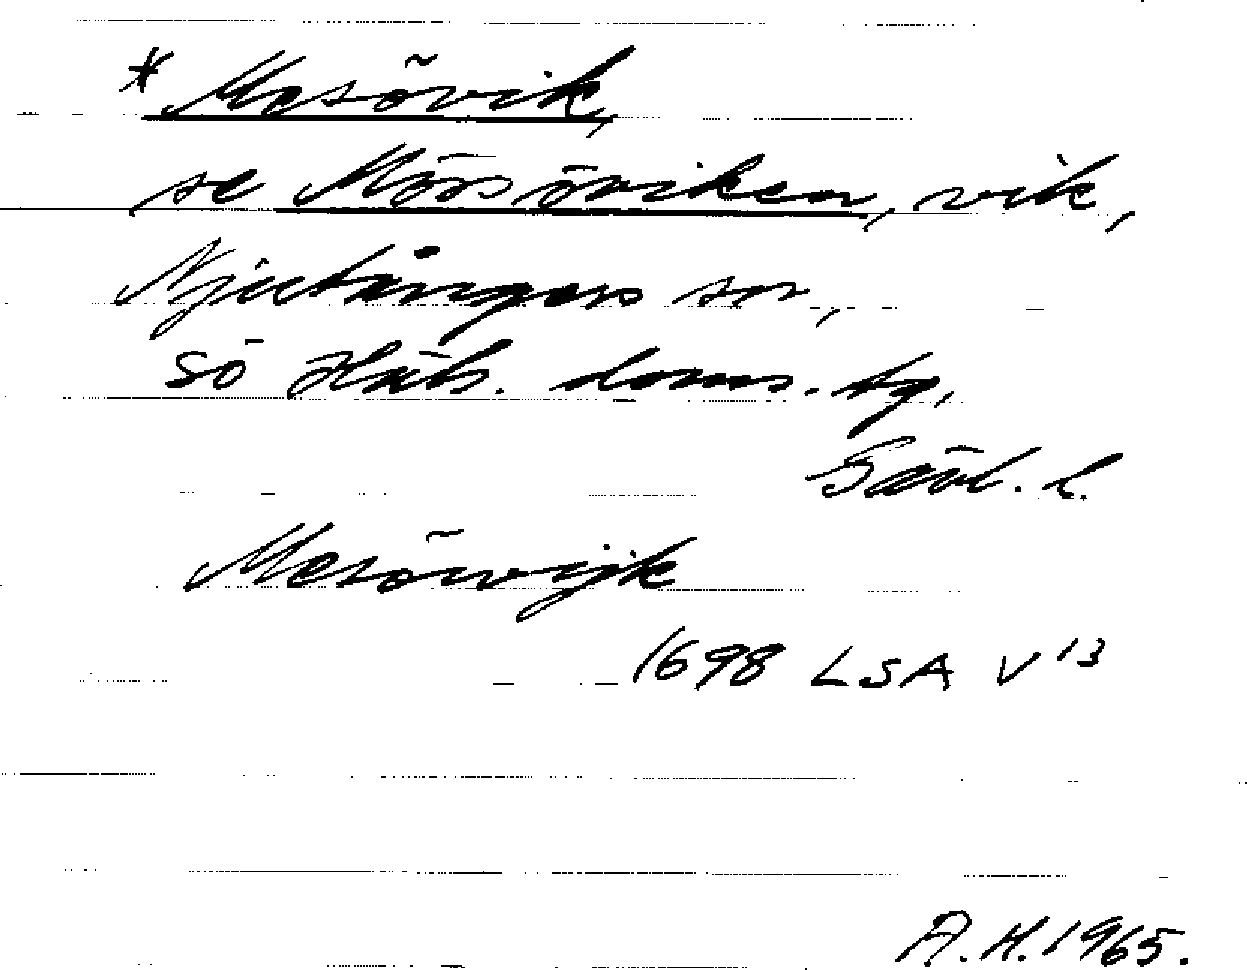 * Mesövik,
se Mössöviken, vik,
Njutångers sn,
sö Häls. doms. tg,
Gävl. l.
Mesöwijk
1698 LSA V 13
A.H. 1965.